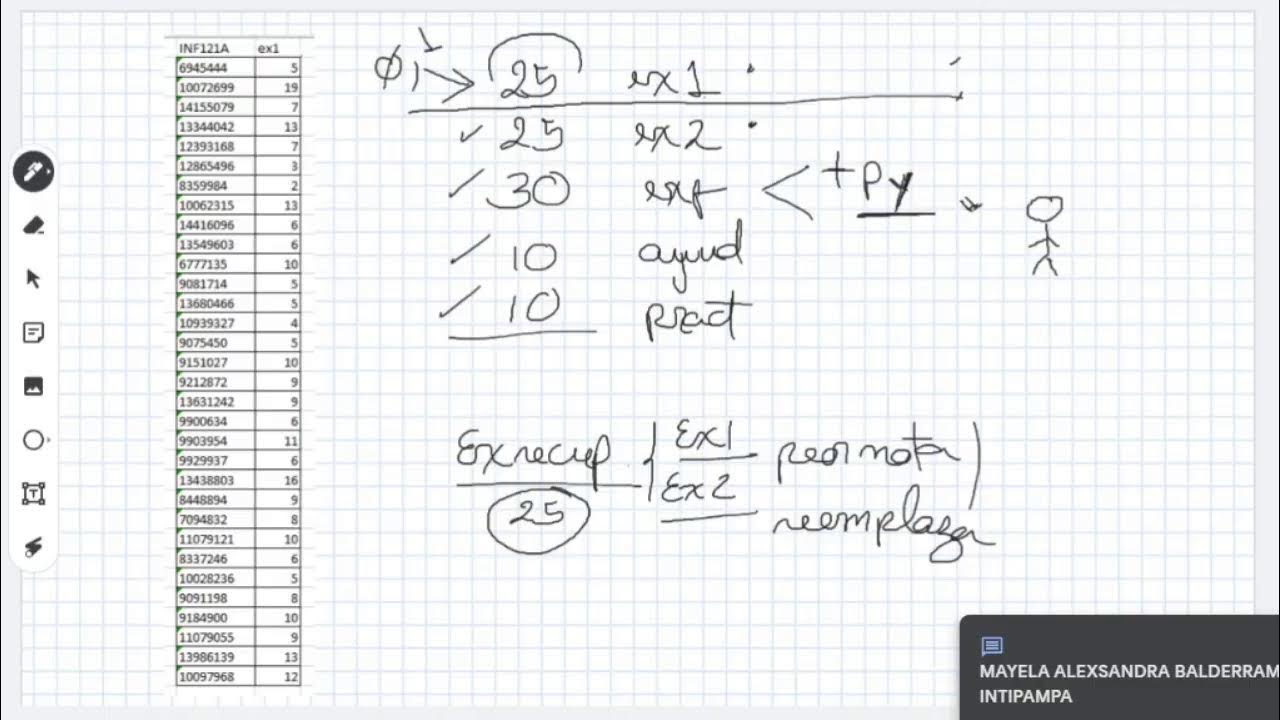 INF121A ex1
6945444 5
10072699 19
14155079 7
13344042 13
12393168 7
12865496 3
8359984 2
10062315 13
14416096 6
13549603 6
6777135 10
9081714 5
13680466 5
10939327 4
9075450 5
9151027 10
9212872 9
13631242 9
9900634 6
9903954 11
9929937 6
13438803 16
8448894 9
7094832 8
11079121 10
8337246 6
10028236 5
9091198 8
9184900 10
11079055 9
13986139 13
10097968 12
25 ex1
25 ex2
30 exf < +py
10 ayud
10 pract
Ex recup { Ex1 peor nota
25 Ex2 reemplaza
MAYELA ALEXSANDRA BALDERRAM
INTIPAMPA